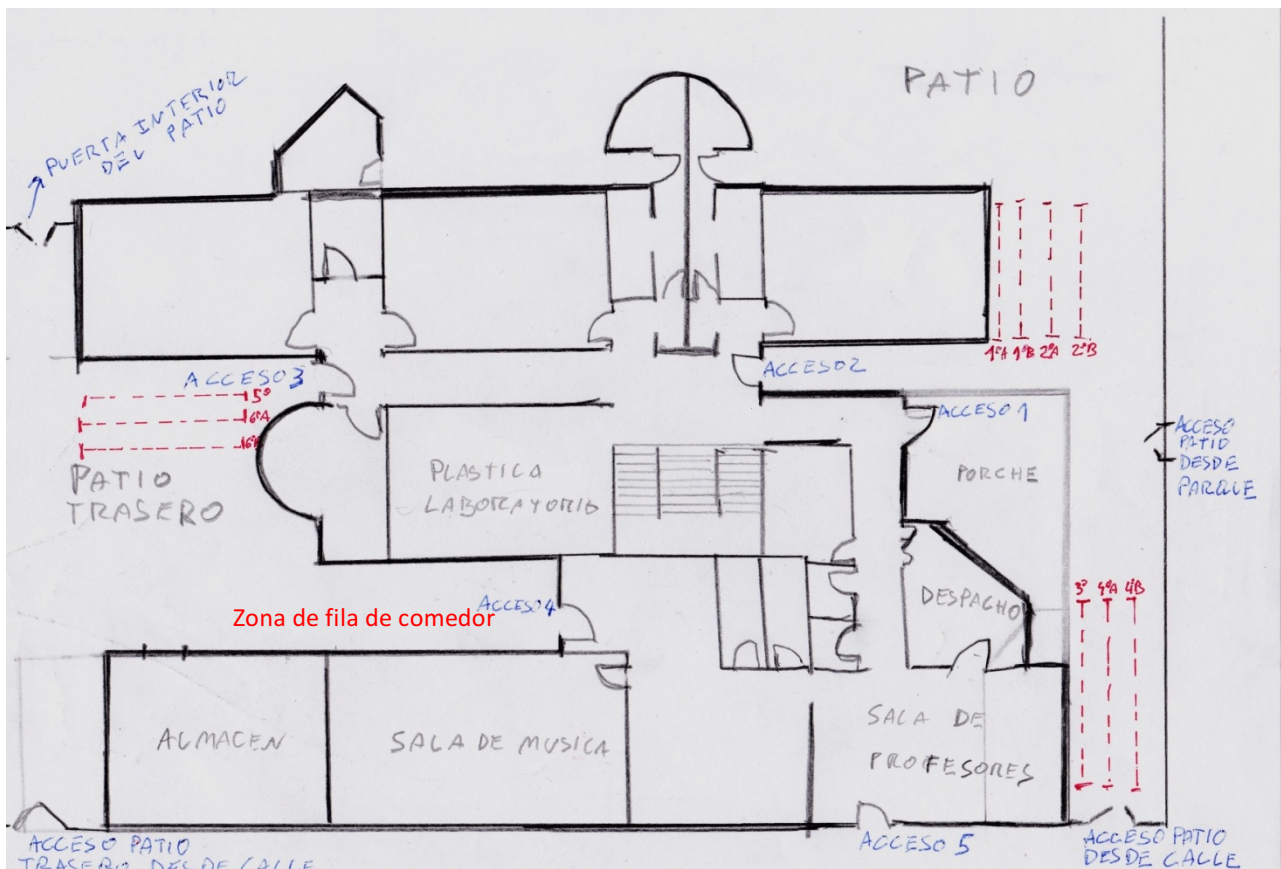 PATIO
PUERTA INTERIOR
DEL PATIO
1ºA 1ºB 2ºA 2ºB
ACCESO 3
ACCESO 2
5º
6ºA
6ºB
ACCESO 1
ACCESO
PATIO
DESDE
PARQUE
PATIO
TRASERO
PLASTICA
LABORATORIO
PORCHE
3º 4ºA 4ºB
DESPACHO
ACCESO 4
Zona de fila de comedor
ALMACEN
SALA DE MUSICA
SALA DE
PROFESORES
ACCESO PATIO
TRASERO DESDE CALLE
ACCESO 5
ACCESO PATIO
DESDE CALLE